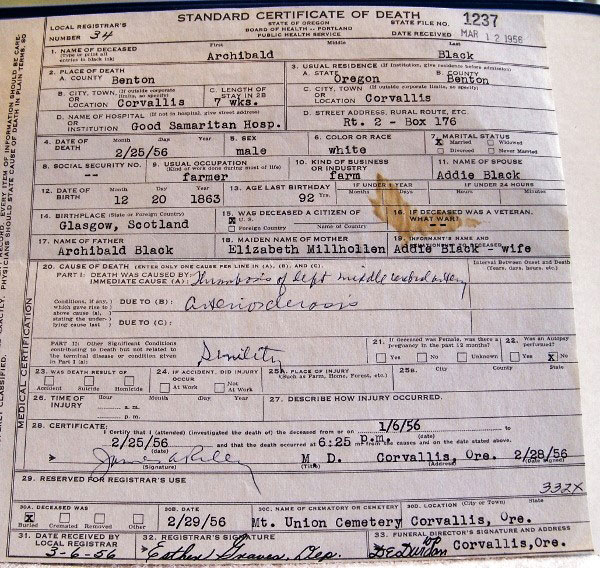 STANDARD CERTIFICATE OF DEATH
LOCAL REGISTRAR'S NUMBER 34
STATE OF OREGON
BOARD OF HEALTH — PORTLAND
PUBLIC HEALTH SERVICE
STATE FILE NO. 1237
DATE RECEIVED MAR 12 1956
1. NAME OF DECEASED First Middle Last
(Type or print all entries in black ink) Archibald Black
2. PLACE OF DEATH
A. COUNTY Benton
3. USUAL RESIDENCE (If institution, give residence before admission)
A. STATE Oregon B. COUNTY Benton
B. CITY, TOWN (If outside corporate limits, so specify) OR LOCATION Corvallis
C. LENGTH OF STAY IN 2B 7 wks.
C. CITY, TOWN (If outside corporate limits, so specify) OR LOCATION Corvallis
D. NAME OF HOSPITAL (If not in hospital, give street address) OR INSTITUTION Good Samaritan Hosp.
D. STREET ADDRESS, RURAL ROUTE, ETC.
Rt. 2 - Box 176
4. DATE OF DEATH Month Day Year
2/25/56
5. SEX
male
6. COLOR OR RACE
white
7. MARITAL STATUS
X Married Widowed
Divorced Never Married
8. SOCIAL SECURITY NO.
--
9. USUAL OCCUPATION
(Kind of work done during most of life)
farmer
10. KIND OF BUSINESS OR INDUSTRY
farm
11. NAME OF SPOUSE
Addie Black
12. DATE OF BIRTH Month Day Year
12 20 1863
13. AGE LAST BIRTHDAY
92 Yrs.
IF UNDER 1 YEAR
IF UNDER 24 HOURS
Hours Minutes
14. BIRTHPLACE (State or Foreign Country)
Glasgow, Scotland
15. WAS DECEASED A CITIZEN OF
X U.S.
Foreign Country Name of Country
16. IF DECEASED WAS A VETERAN, WHAT WAR?
--
17. NAME OF FATHER
Archibald Black
18. MAIDEN NAME OF MOTHER
Elizabeth Millhollen
19. INFORMANT'S NAME AND
Addie Black - wife
20. CAUSE OF DEATH (ENTER ONLY ONE CAUSE PER LINE IN (A), (B), AND (C).
Interval Between Onset and Death
(Years, days, hours, etc.)
PART I: DEATH WAS CAUSED BY:
IMMEDIATE CAUSE (A): Thrombosis of left middle cerebral artery
Conditions, if any, which gave rise to above cause (a), stating the underlying cause last
DUE TO (B): arteriosclerosis
DUE TO (C):
PART II: Other Significant Conditions contributing to Death but not related to the terminal disease or condition given in Part I (a): Senility
21. If deceased was Female, was there a pregnancy in the past 12 months?
Yes No Unknown
22. Was an Autopsy performed?
Yes X No
23. WAS DEATH RESULT OF
Accident Suicide Homicide
24. IF ACCIDENT, DID INJURY OCCUR
At Work Not At Work
25A. PLACE OF INJURY
(Such as Farm, Home, Forest, etc.)
City County State
26. TIME OF INJURY Hour Month Day Year
a.m.
p.m.
27. DESCRIBE HOW INJURY OCCURRED.
28. CERTIFICATE:
I Certify that I (attended) (investigated) the death of the deceased from or on 1/6/56 to
(date)
2/25/56 and that the death occurred at 6:25 p.m. from the causes and on the date stated above.
(date)
M D. Corvallis, Ore. 2/28/56
(Signature) (Title) (Address) (Date Signed)
29. RESERVED FOR REGISTRAR'S USE
332X
30A. DECEASED WAS
X Buried Cremated Removed Other
30B. DATE
2/29/56
30C. NAME OF CEMETERY OR CREMATORY
Mt. Union Cemetery
30D. LOCATION (City or Town) State
Corvallis, Ore.
31. DATE RECEIVED BY LOCAL REGISTRAR
3-6-56
32. REGISTRAR'S SIGNATURE
Esther Graves, Dep.
33. FUNERAL DIRECTOR'S SIGNATURE AND ADDRESS
Corvallis, Ore.
MEDICAL CERTIFICATION